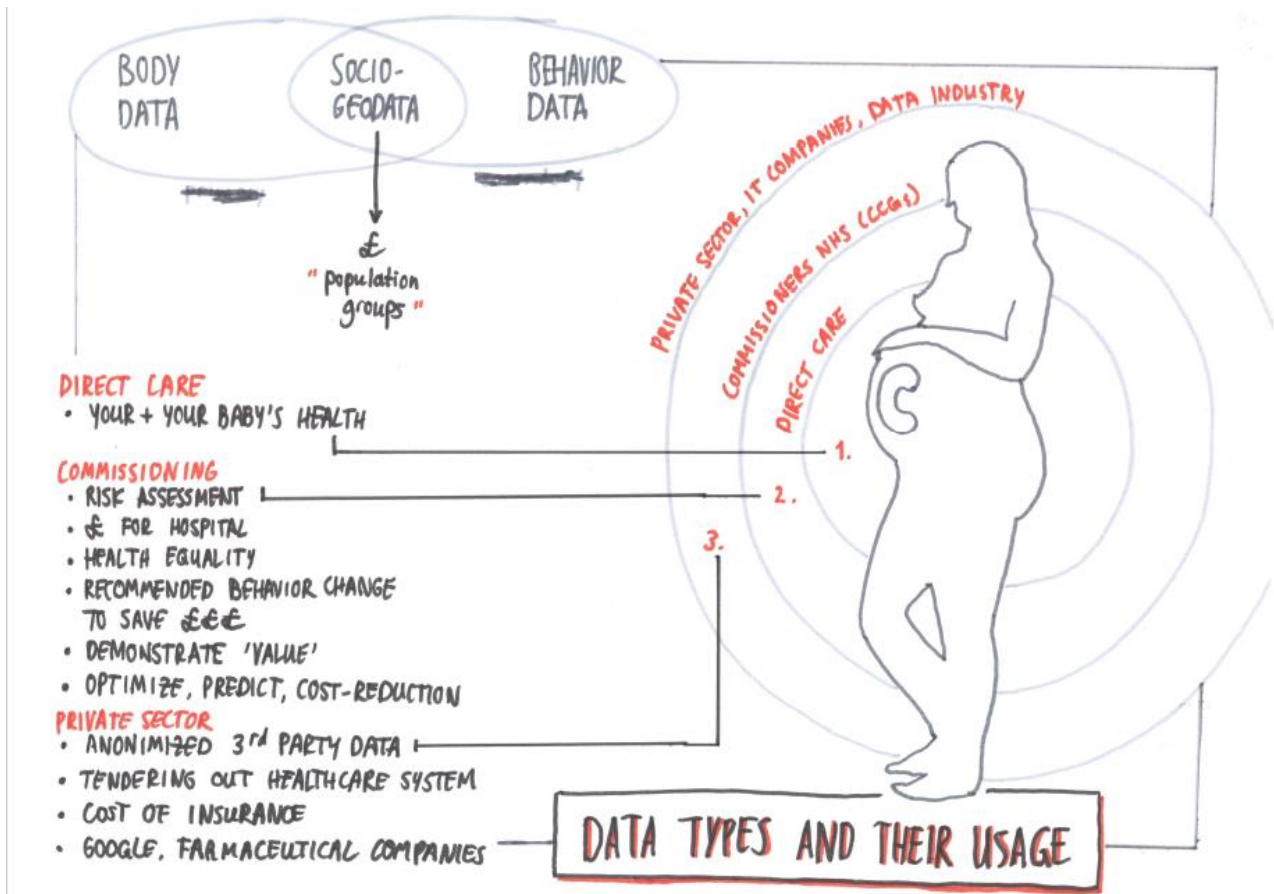 BODY
DATA
SOCIO-
GEODATA
BEHAVIOR
DATA
£
"population
groups"
PRIVATE SECTOR, IT COMPANIES, DATA INDUSTRY
COMMISSIONERS NHS (CCGs)
DIRECT CARE
DIRECT CARE
• YOUR + YOUR BABY'S HEALTH
1.
COMMISSIONING
• RISK ASSESSMENT
2.
• £ FOR HOSPITAL
3.
• HEALTH EQUALITY
• RECOMMENDED BEHAVIOR CHANGE
TO SAVE £££
• DEMONSTRATE 'VALUE'
• OPTIMIZE, PREDICT, COST-REDUCTION
PRIVATE SECTOR
• ANONIMIZED 3rd PARTY DATA
• TENDERING OUT HEALTHCARE SYSTEM
• COST OF INSURANCE
• GOOGLE, FARMACEUTICAL COMPANIES
DATA TYPES AND THEIR USAGE